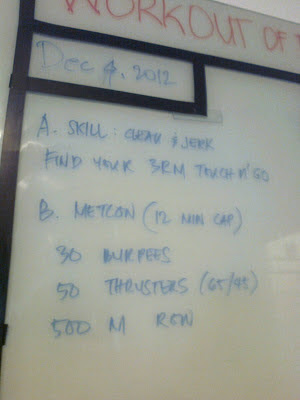 WORKOUT OF
Dec 4, 2012
A. SKILL: CLEAN & JERK
FIND YOUR 3RM TOUCH N' GO
B. METCON (12 MIN CAP)
30 BURPEES
50 THRUSTERS (65/45)
500 M ROW